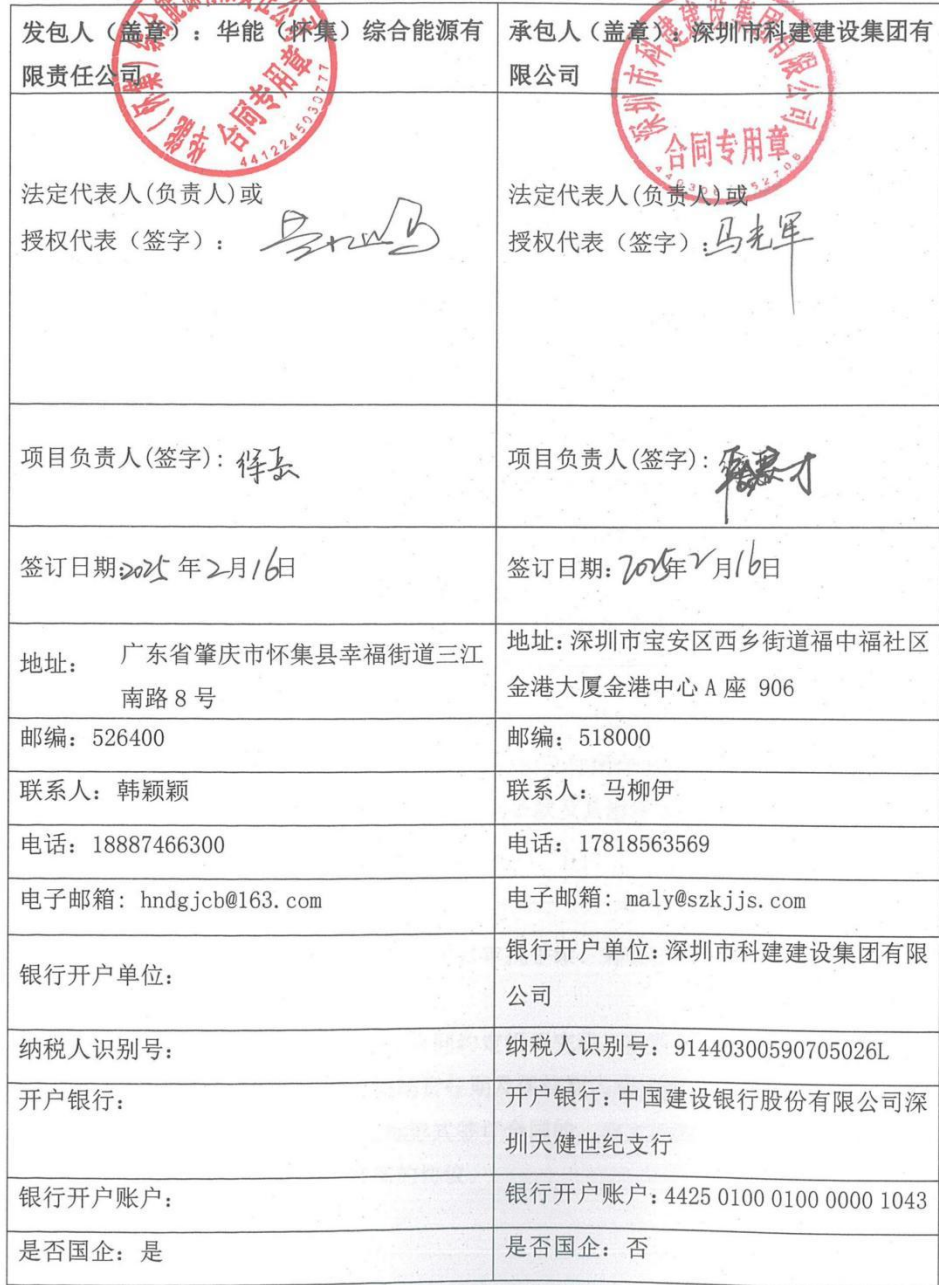 发包人（盖章）：华能（怀集）综合能源有
限责任公司
承包人（盖章）：深圳市科建建设集团有
限公司
合同专用章
4412245030777
深圳市科建建设集团有限公司
合同专用章
法定代表人(负责人)或
授权代表（签字）：
法定代表人(负责人)或
授权代表（签字）:马光军
项目负责人(签字):
项目负责人(签字):
签订日期:2025年2月16日
签订日期:2025年2月16日
地址： 广东省肇庆市怀集县幸福街道三江
南路8号
地址:深圳市宝安区西乡街道福中福社区
金港大厦金港中心A座 906
邮编：526400
邮编：518000
联系人：韩颖颖
联系人：马柳伊
电话：18887466300
电话：17818563569
电子邮箱: hndgjcb@163.com
电子邮箱: maly@szkjjs.com
银行开户单位：
银行开户单位:深圳市科建建设集团有限
公司
纳税人识别号：
纳税人识别号：91440300590705026L
开户银行：
开户银行:中国建设银行股份有限公司深
圳天健世纪支行
银行开户账户：
银行开户账户:4425 0100 0100 0000 1043
是否国企：是
是否国企：否